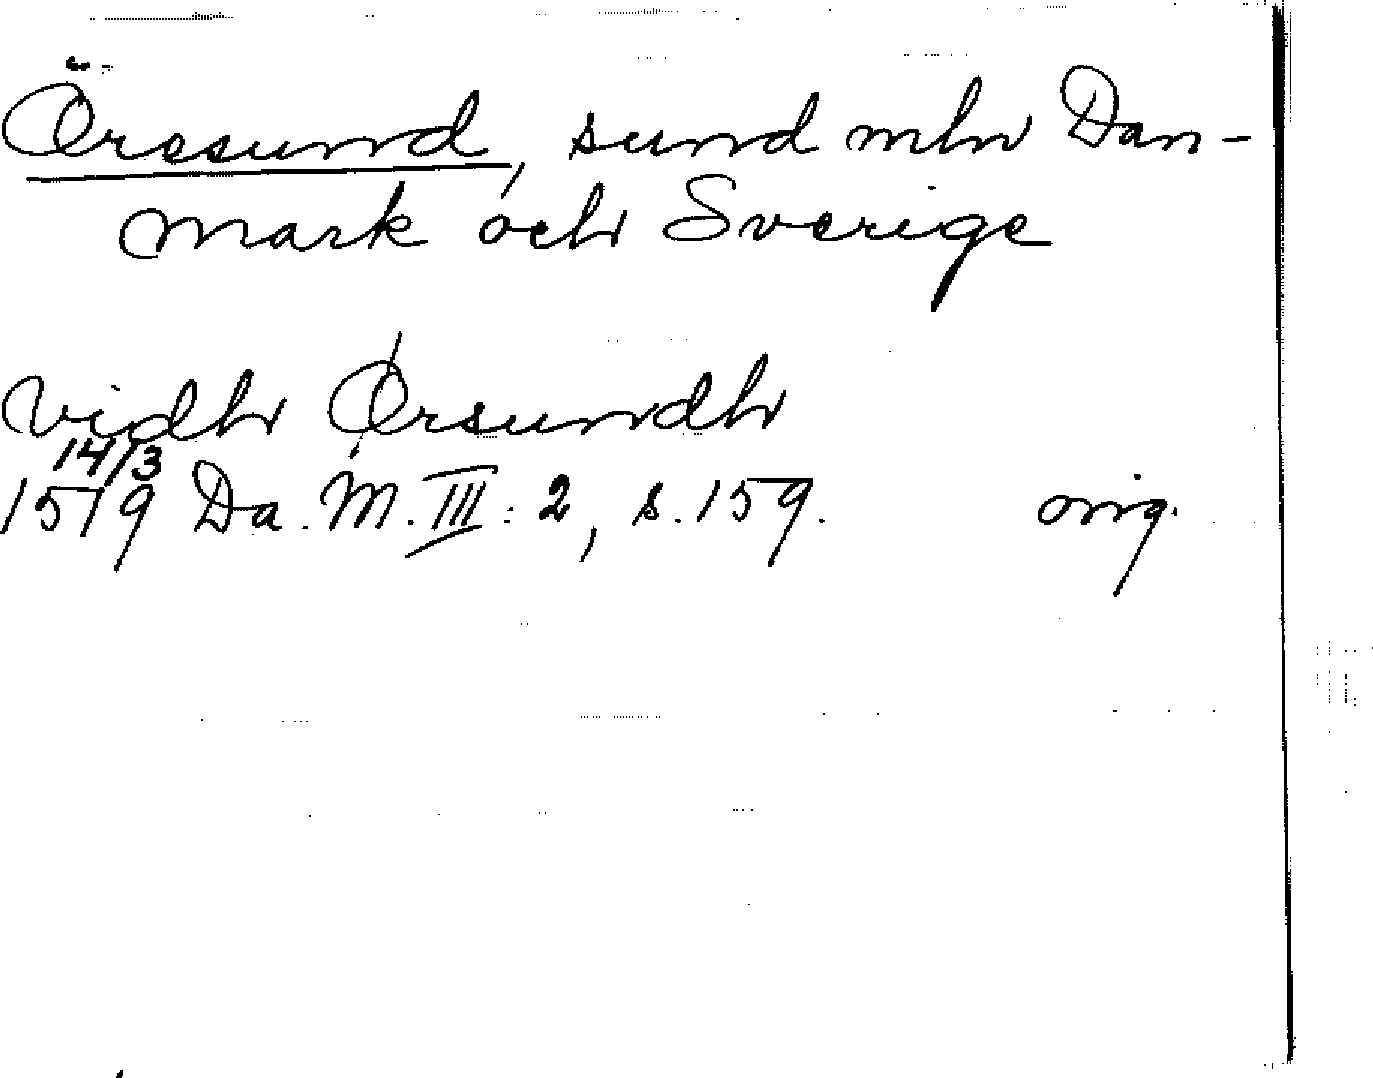 Öresund, sund mln Dan-
mark och Sverige
vidh Ørsundh
14/3
1519 Da. M. III: 2, s. 159. orig.